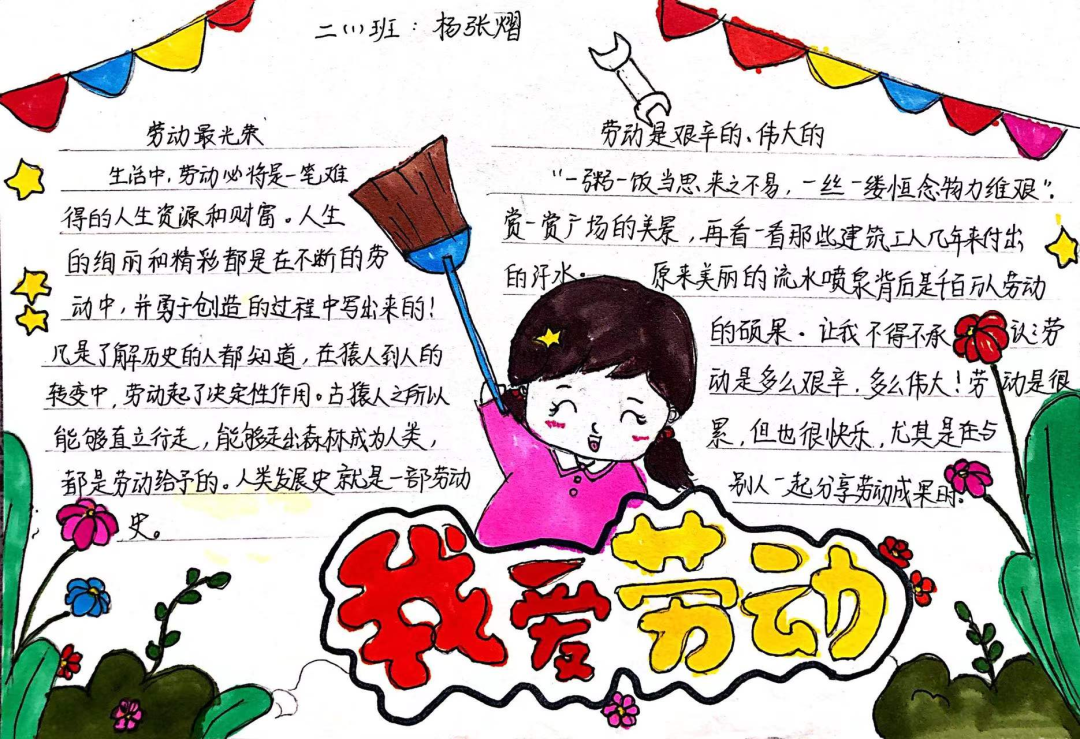 二(1)班：杨张熠
劳动最光荣
生活中，劳动必将是一笔难
得的人生资源和财富。人生
的绚丽和精彩都是在不断的劳
动中，并勇于创造的过程中写出来的！
凡是了解历史的人都知道，在猿人到人的
转变中，劳动起了决定性作用。古猿人之所以
能够直立行走，能够走出森林成为人类，
都是劳动给予的。人类发展史就是一部劳动
史。
劳动是艰辛的、伟大的
“一粥一饭当思来之不易，一丝一缕恒念物力维艰”。
赏一赏广场的美景，再看一看那些建筑工人几年来付出
的汗水。原来美丽的流水喷泉背后是千百万人劳动
的硕果。让我不得不承认：劳
动是多么艰辛，多么伟大！劳动是很
累，但也很快乐，尤其是在与
别人一起分享劳动成果时。
我爱劳动